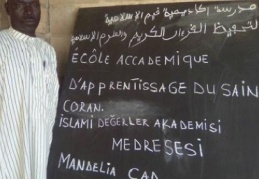 مدرسة اكاديمية قيم الاسلامية
لتحفيظ القرآن الكريم والعلوم الاسلامية
ÉCOLE ACCADEMIQUE
D'APPRENTISSAGE DU SAIN
CORAN.
İSLAMİ DEĞERLER AKADEMİSİ
MEDRESESİ
MANDELIA